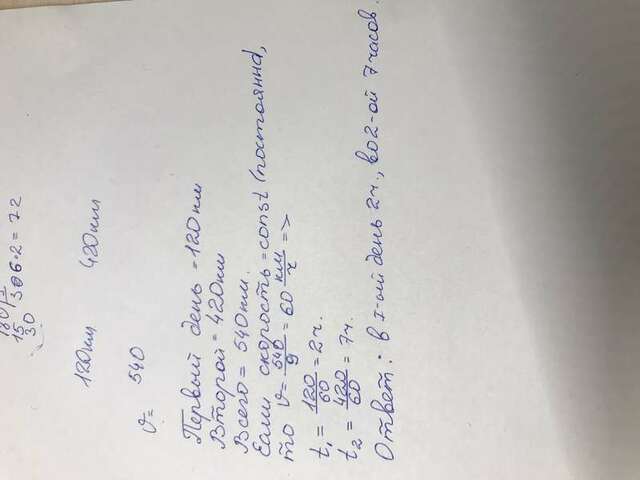 15
30
306·2=72
120км 420км
v= 540
Первый день = 120км
Второй = 420км
Всего = 540км.
Если скорость = const (постоянна),
то v = 540/9 = 60 км/ч =>
t₁ = 120/60 = 2ч.
t₂ = 420/60 = 7ч.
Ответ: в I-ый день 2ч., во 2-ой 7 часов.